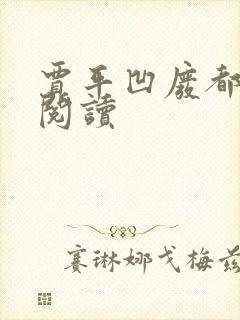 賈平凹廢都
閱讀
賽琳娜戈梅茲